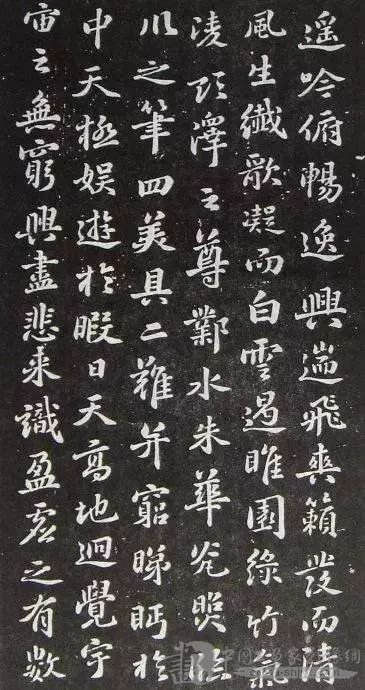 遥吟俯暢逸興遄飛爽籟發而清
風生纖歌凝而白雲遏睢園綠竹氣
凌彭澤之尊鄴水朱華光照臨
川之筆四美具二難并窮睇眄於
中天極娛遊於暇日天高地迥覺宇
宙之無窮興盡悲来識盈虚之有數